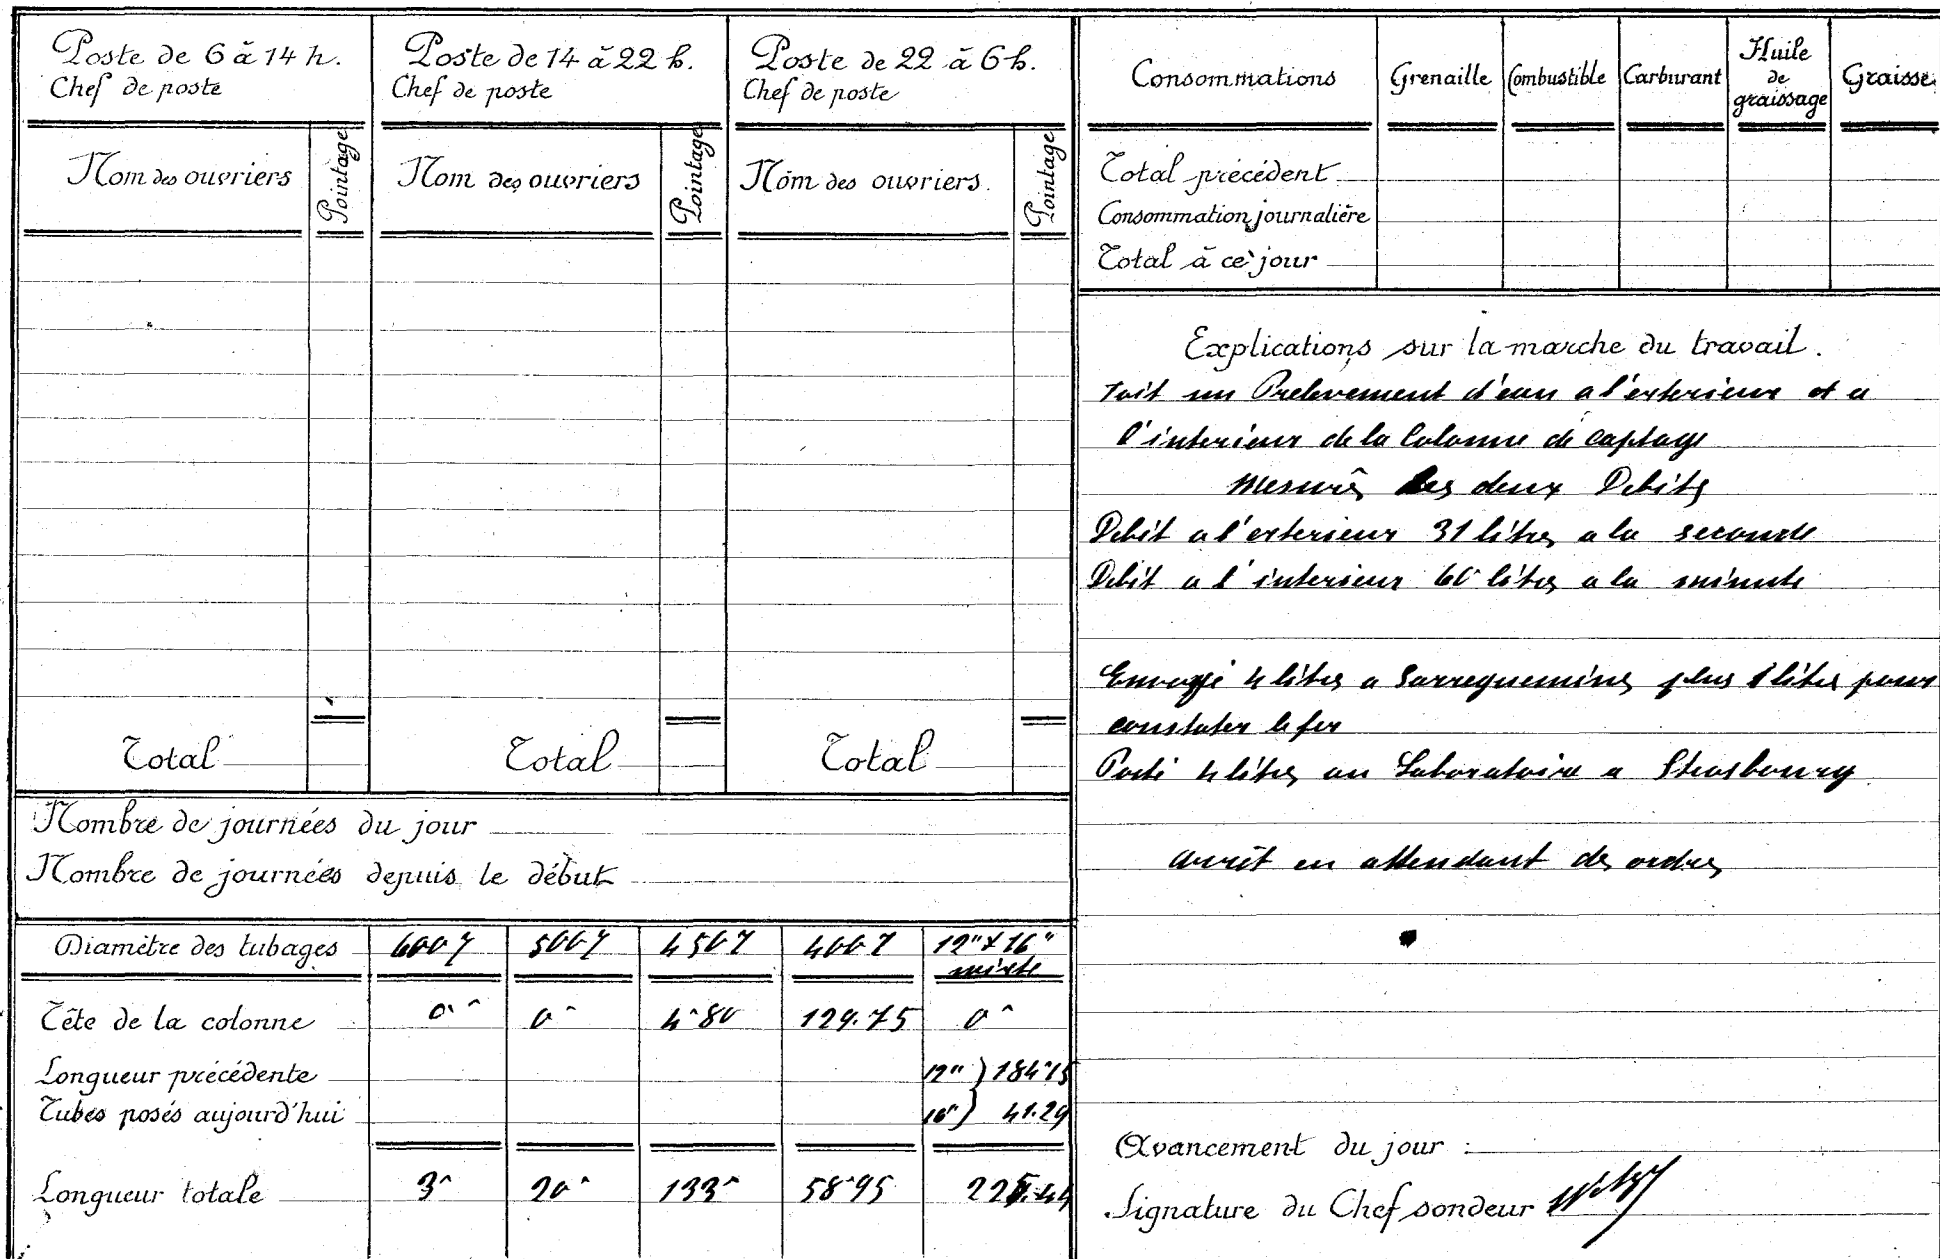 Poste de 6 à 14 h.
Chef de poste
Nom des ouvriers
Pointage
Total
Poste de 14 à 22 h.
Chef de poste
Nom des ouvriers
Pointage
Total
Poste de 22 à 6 h.
Chef de poste
Nom des ouvriers.
Pointage
Total
Nombre de journées du jour
Nombre de journées depuis le début
Diamètre des tubages 12" x 16"
mixte
Tête de la colonne 0^ 0^ 4^80 129.75 0^
Longueur précédente 12" ) 184^15
Tubes posés aujourd'hui 16" ) 41.29
Longueur totale 3^ 20^ 133^ 58^95
Consommations Grenaille Combustible Carburant Huile de graissage Graisse
Total précédent
Consommation journalière
Total à ce jour
Explications sur la marche du travail.
Fait un Prelevement d'eau a l'exterieur et a
l'interieur de la Colonne de captage
mesurés les deux Debits
Debit a l'exterieur 31 litres a la seconde
Debit a l'interieur litres a la minute
Envoyé 4 litres a Sarreguemines plus litres pour
constater le fer
Porté 4 litres au Laboratoire a Strasbourg
arrêt en attendant des ordres
Avancement du jour :
Signature du Chef sondeur